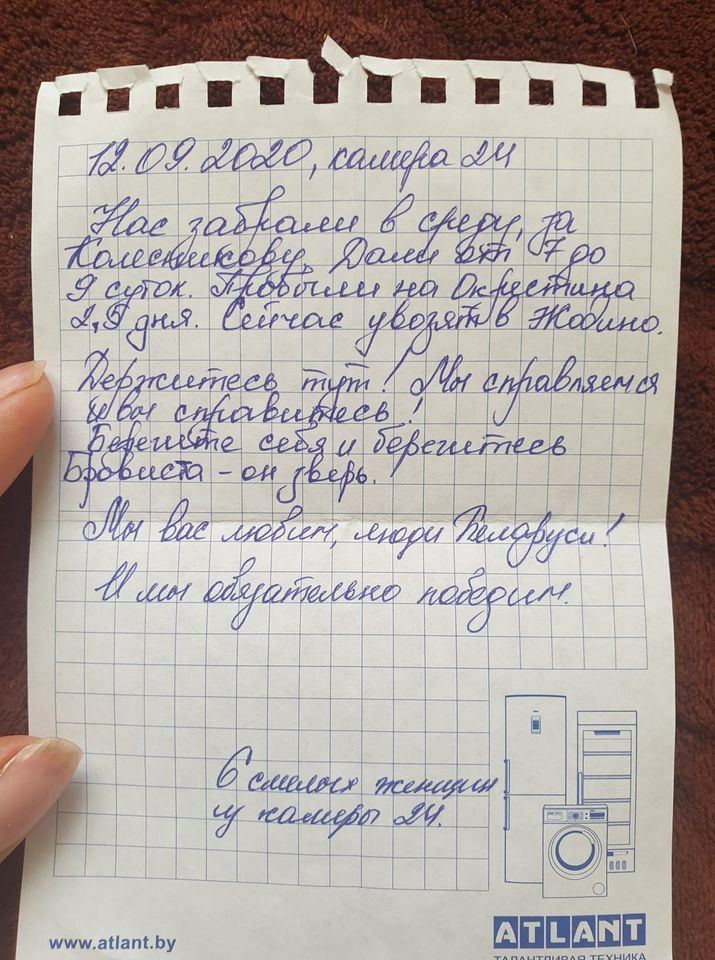 12.09.2020, камера 24
Нас забрали в среду, за
Колесникову. Дали от 7 до
9 суток. Пробыли на Окрестина
2,5 дня. Сейчас увозят в Жодино.
Держитесь тут! Мы справляемся
и вы справитесь!
Берегите себя и берегитесь
Бровиста - он зверь.
Мы вас любим, люди Беларуси!
И мы обязательно победим.
6 смелых женщин
из камеры 24.
www.atlant.by
ATLANT
ТАЛАНТЛИВАЯ ТЕХНИКА